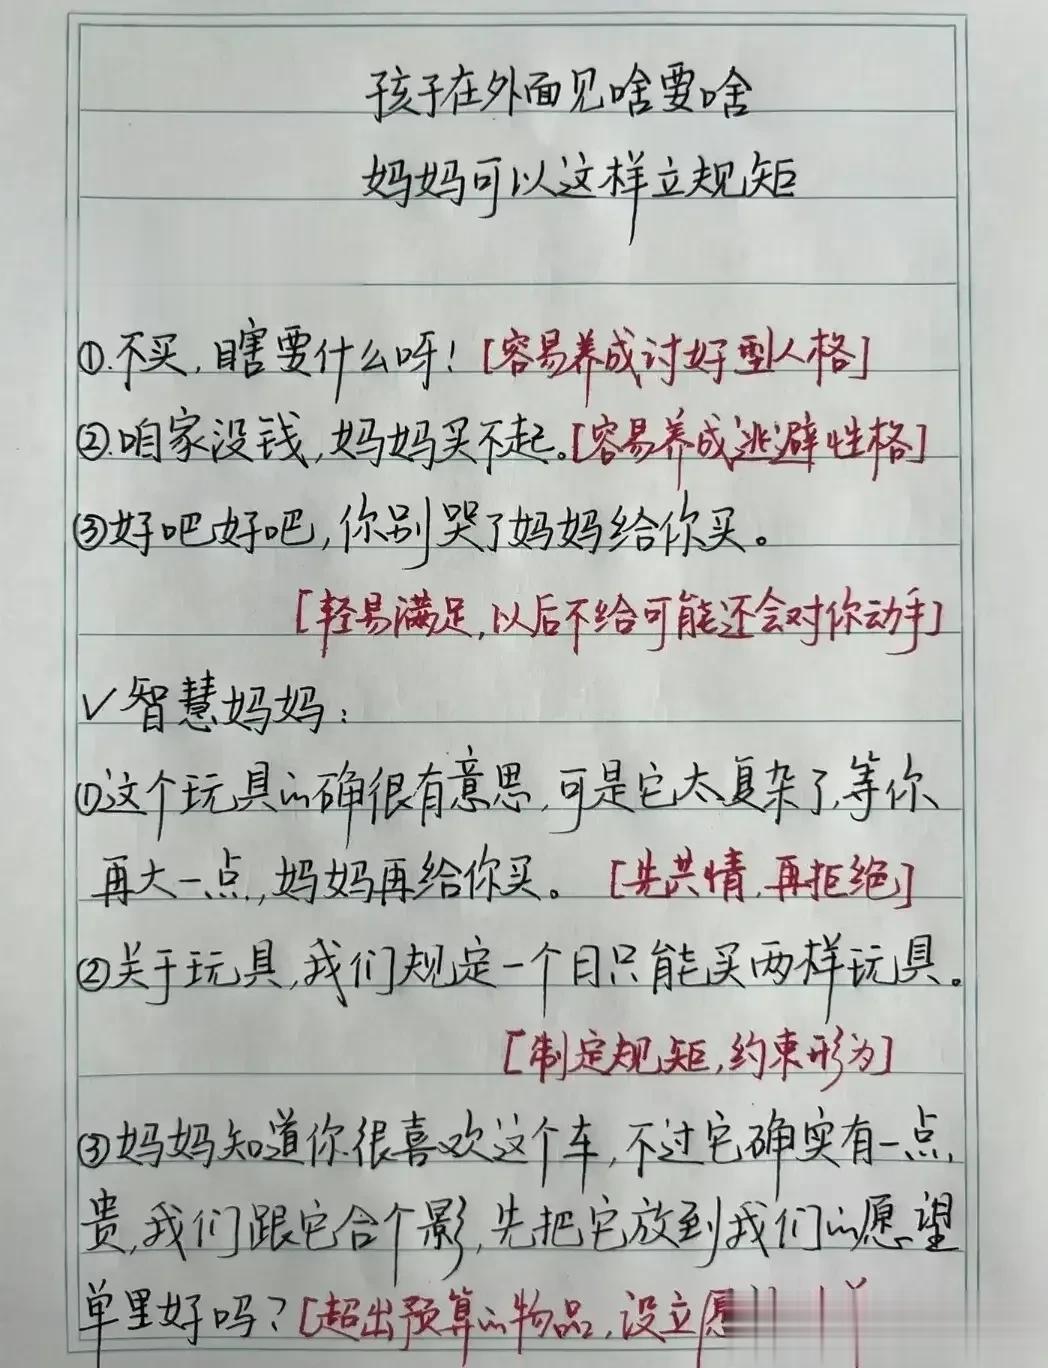 孩子在外面见啥要啥
妈妈可以这样立规矩
①.不买,瞎要什么呀！[容易养成讨好型人格]
②.咱家没钱,妈妈买不起。[容易养成逃避性格]
③好吧好吧,你别哭了妈妈给你买。
[轻易满足,以后不给可能还会对你动手]
✓智慧妈妈:
①这个玩具的确很有意思,可是它太复杂了,等你
再大一点,妈妈再给你买。[先共情,再拒绝]
②关于玩具,我们规定一个月只能买两样玩具。
[制定规矩,约束形为]
③妈妈知道你很喜欢这个车,不过它确实有一点
贵,我们跟它合个影,先把它放到我们的愿望
单里好吗？[超出预算的物品,设立